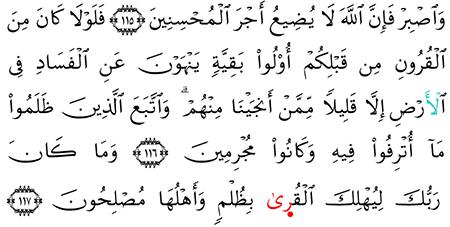 وَٱصۡبِرۡ فَإِنَّ ٱللَّهَ لَا يُضِيعُ أَجۡرَ ٱلۡمُحۡسِنِينَ ١١٥ فَلَوۡلَا كَانَ مِنَ
ٱلۡقُرُونِ مِن قَبۡلِكُمۡ أُوْلُواْ بَقِيَّةٖ يَنۡهَوۡنَ عَنِ ٱلۡفَسَادِ فِي
ٱلۡأَرۡضِ إِلَّا قَلِيلٗا مِّمَّنۡ أَنجَيۡنَا مِنۡهُمۡۗ وَٱتَّبَعَ ٱلَّذِينَ ظَلَمُواْ
مَآ أُتۡرِفُواْ فِيهِ وَكَانُواْ مُجۡرِمِينَ ١١٦ وَمَا كَانَ
رَبُّكَ لِيُهۡلِكَ ٱلۡقُرىٰ بِظُلۡمٖ وَأَهۡلُهَا مُصۡلِحُونَ ١١٧